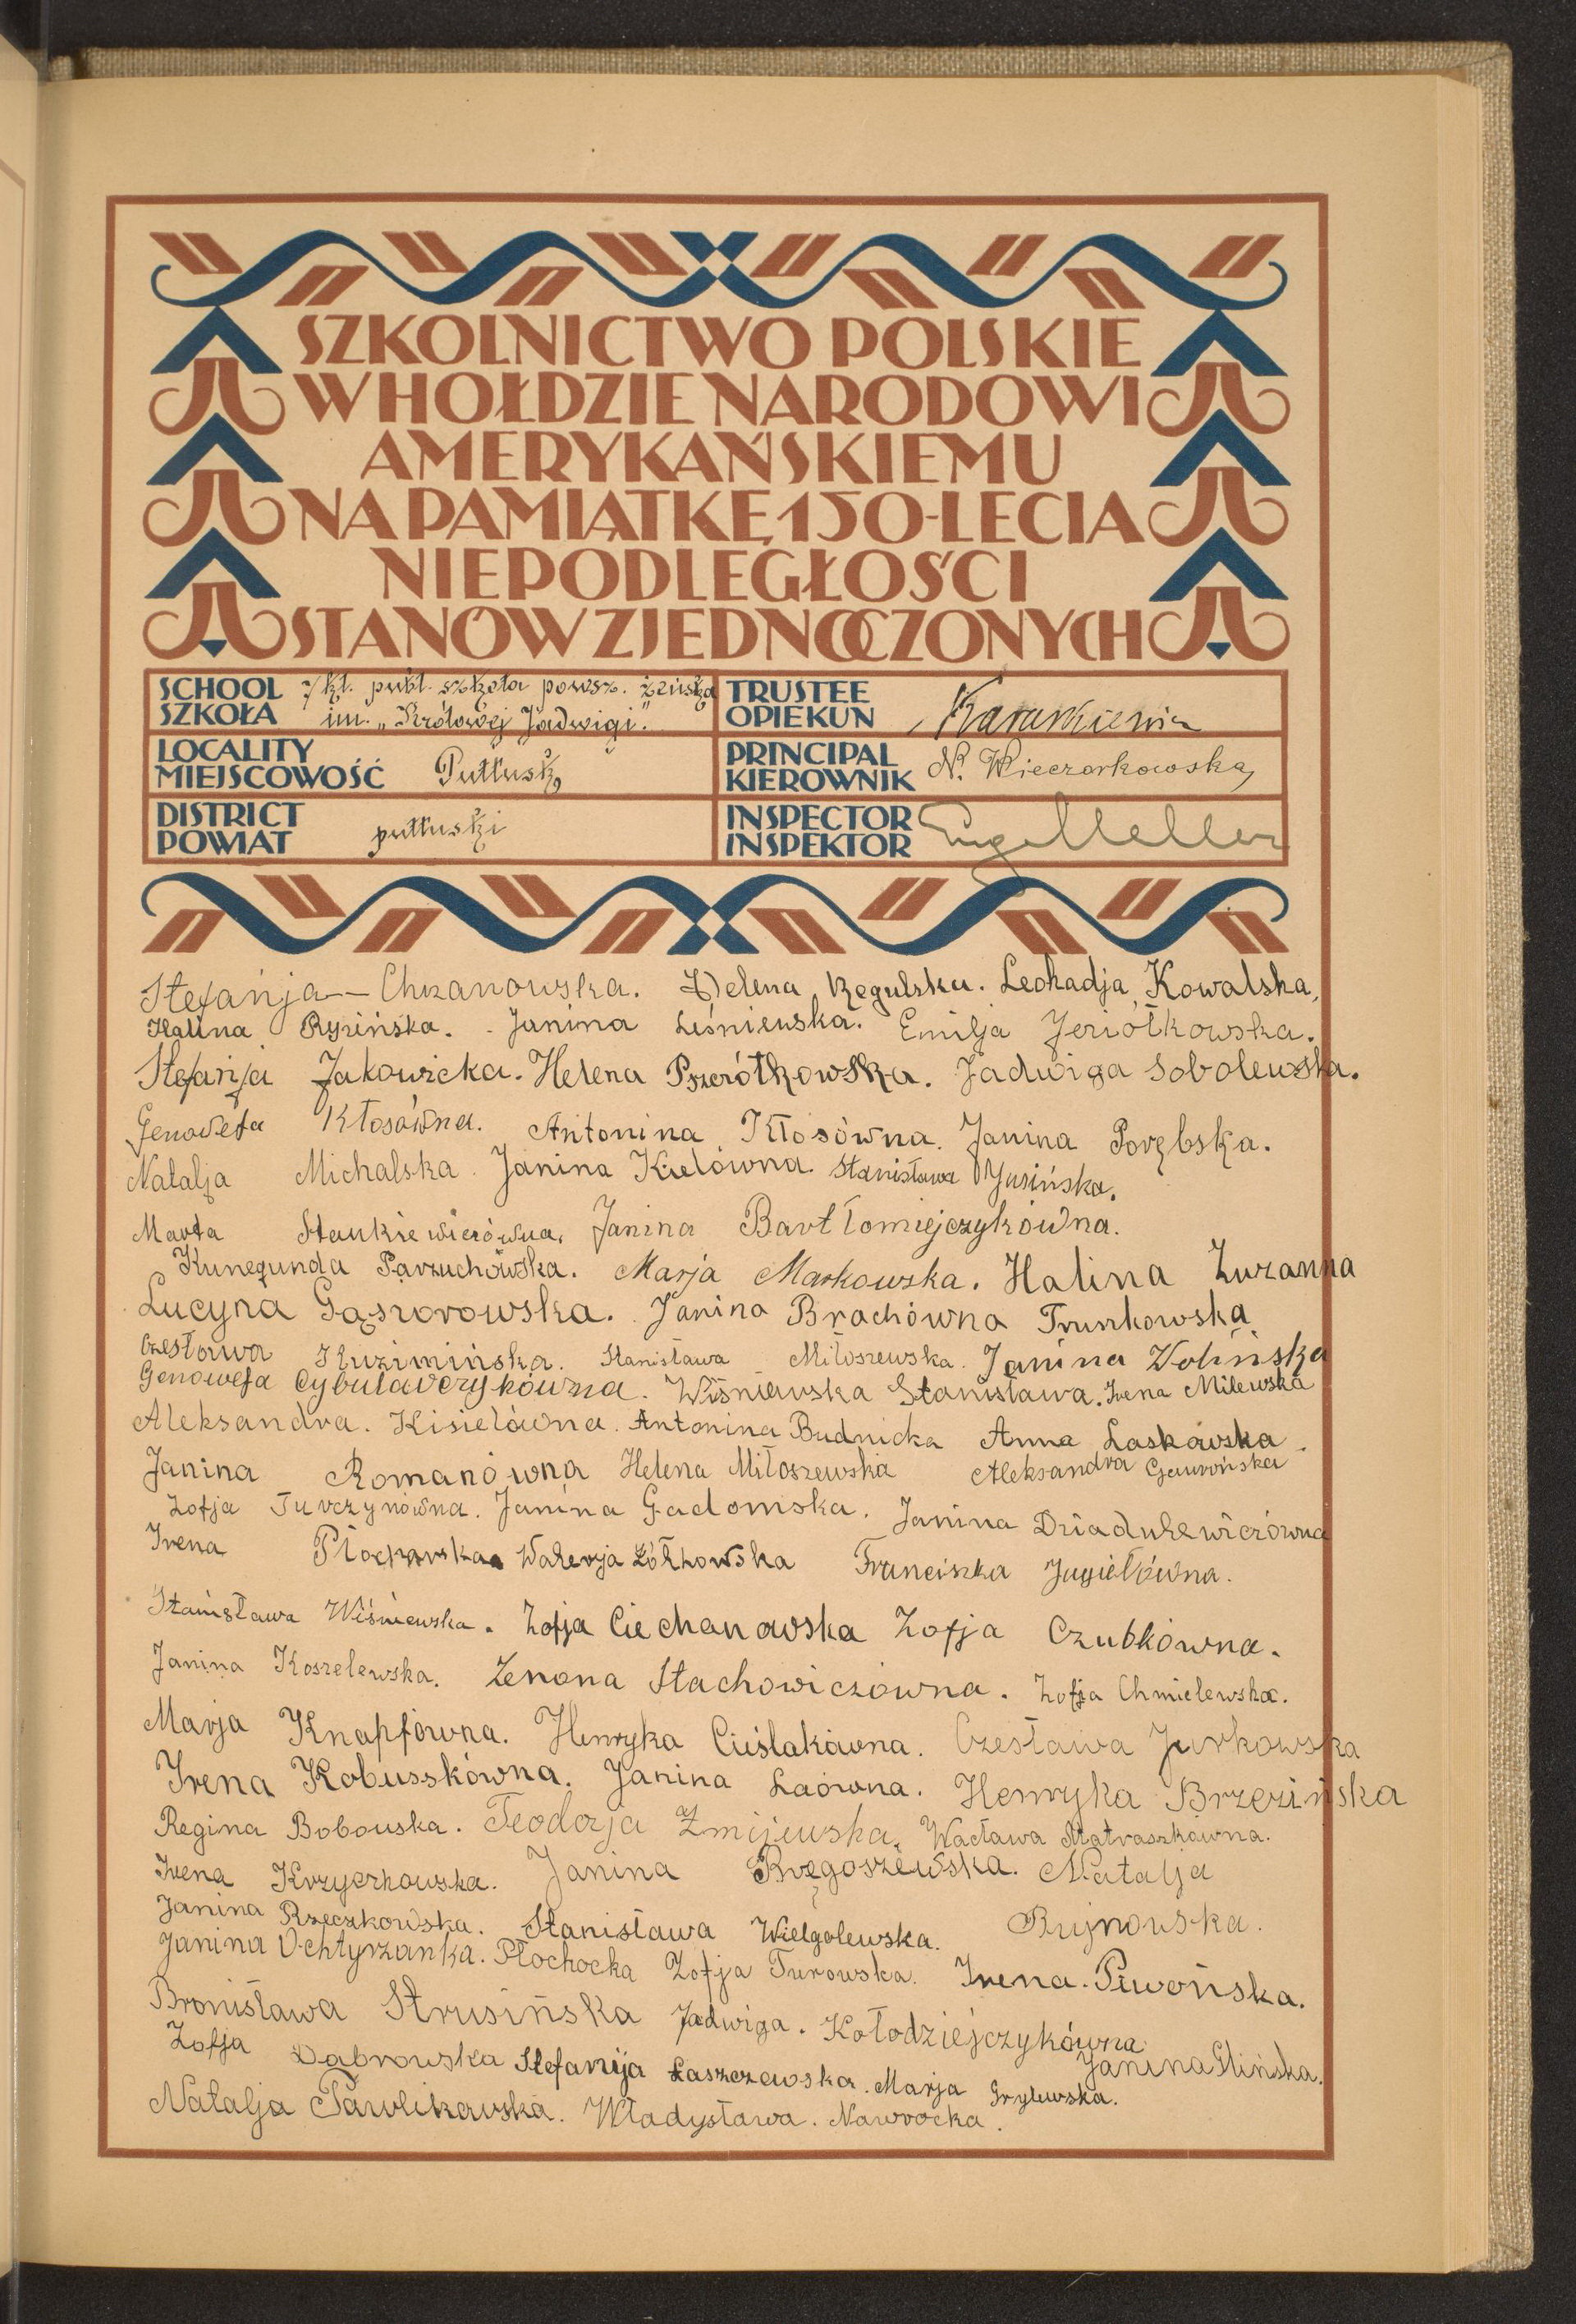 SZKOLNICTWO POLSKIE
W HOŁDZIE NARODOWI
AMERYKAŃSKIEMU
NA PAMIĄTKĘ 150-LECIA
NIEPODLEGŁOŚCI
STANÓW ZJEDNOCZONYCH
SCHOOL SZKOŁA 7 kl. publ. szkoła powsz. żeńska
im. „Królowej Jadwigi".
TRUSTEE OPIEKUN
LOCALITY MIEJSCOWOŚĆ Pułtusk,
PRINCIPAL KIEROWNIK N. Wieczorkowska
DISTRICT POWIAT pułtuski
INSPECTOR INSPEKTOR
Stefanja – Chrzanowska. Helena Regulska. Leokadja Kowalska,
Halina Rysińska. Janina Leśniewska. Emilja Jeriółkowska.
Stefanja Jakowicka. Helena Pszerótkowska. Jadwiga Sobolewska.
Genowefa Kłosówna. Antonina Kłosówna. Janina Porębska.
Natalja Michalska. Janina Kielówna. Stanisława Jusińska.
Marta Stankiewiczówna, Janina Bartłomiejczykówna.
Kunegunda Parzuchowska. Marja Markowska. Halina Zuzanna
Lucyna Gąsiorowska. Janina Brachówna Trunkowska
Czesława Kuzimińska. Stanisława Miłoszewska. Janina Wolińska
Genowefa Cybulavczykówna. Wiśniewska Stanisława. Irena Milewska
Aleksandra. Kisielówna. Antonina Budnicka Anna Laskowska.
Janina Romanówna Helena Miłoszewska Aleksandra Gawrońska
Zofja Turczynówna. Janina Gadomska. Janina Dziadukewiczówna
Irena Płocharska Walerja Żółkowska Franciszka Jagiełówna.
Stanisława Wiśniewska. Zofja Ciechanowska Zofja Czubkówna.
Janina Koszelewska. Zenona Stachowiczówna. Zofja Chmielewska.
Marja Knapfówna. Henryka Cieślakówna. Czesława Jurkowska
Irena Kobusskówna. Janina Laówna. Henryka Brzezińska
Regina Bobowska. Teodozja Żmijewska. Wacława Matraszkówna.
Irena Krzyczkowska. Janina Bręgoszewska. Natalja
Janina Rzeczkowska. Stanisława Wielgolewska. Rujnowska.
Janina Ochtyrzanka. Płochocka Zofja Turowska. Irena. Piwońska.
Bronisława Strusińska Jadwiga. Kołodziejczykówna
Zofja Dąbrowska Stefanija Łaszczewska. Marja Grylewska. Janina Glińska.
Natalja Pawlikowska. Władysława. Nawrocka.